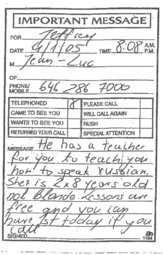 IMPORTANT MESSAGE
FOR Jeffrey
DATE 4/1/05 TIME 8:08 A.M. P.M.
M Jean-Luc
OF
PHONE/ MOBILE 646 286 7000
TELEPHONED PLEASE CALL
CAME TO SEE YOU WILL CALL AGAIN
WANTS TO SEE YOU RUSH
RETURNED YOUR CALL SPECIAL ATTENTION
MESSAGE He has a teacher
for you to teach you
how to speak russian.
She is 2x8 years old
not blonde. Lessons are
free and you can
have 1st today if you
call
SIGNED
1184